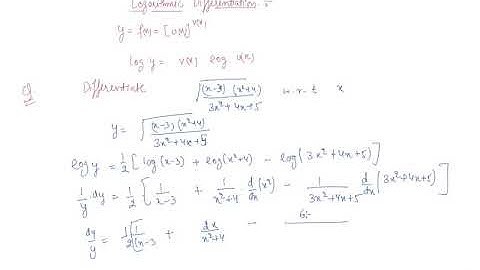 Logarithmic Differentiation :-
y = f(x) = [u(x)]^v(x)
log y = v(x) log u(x)
Q. Differentiate √((x-3)(x²+4) / 3x²+4x+5) w.r.t x
y = √((x-3)(x²+4) / 3x²+4x+5)
log y = 1/2 [log(x-3) + log(x²+4) - log(3x²+4x+5)]
1/y dy = 1/2 [1/x-3 + 1/x²+4 d/dx (x²) - 1/3x²+4x+5 d/dx (3x²+4x+5)]
dy/y = 1/2 [1/x-3 + 2x/x²+4 -